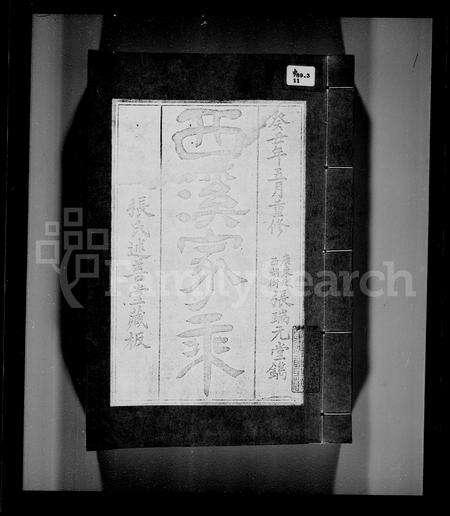 789.3
11
癸亥年五月重修
張瑞元堂鐫
西溪家乘
張氏述善堂藏板
FamilySearch